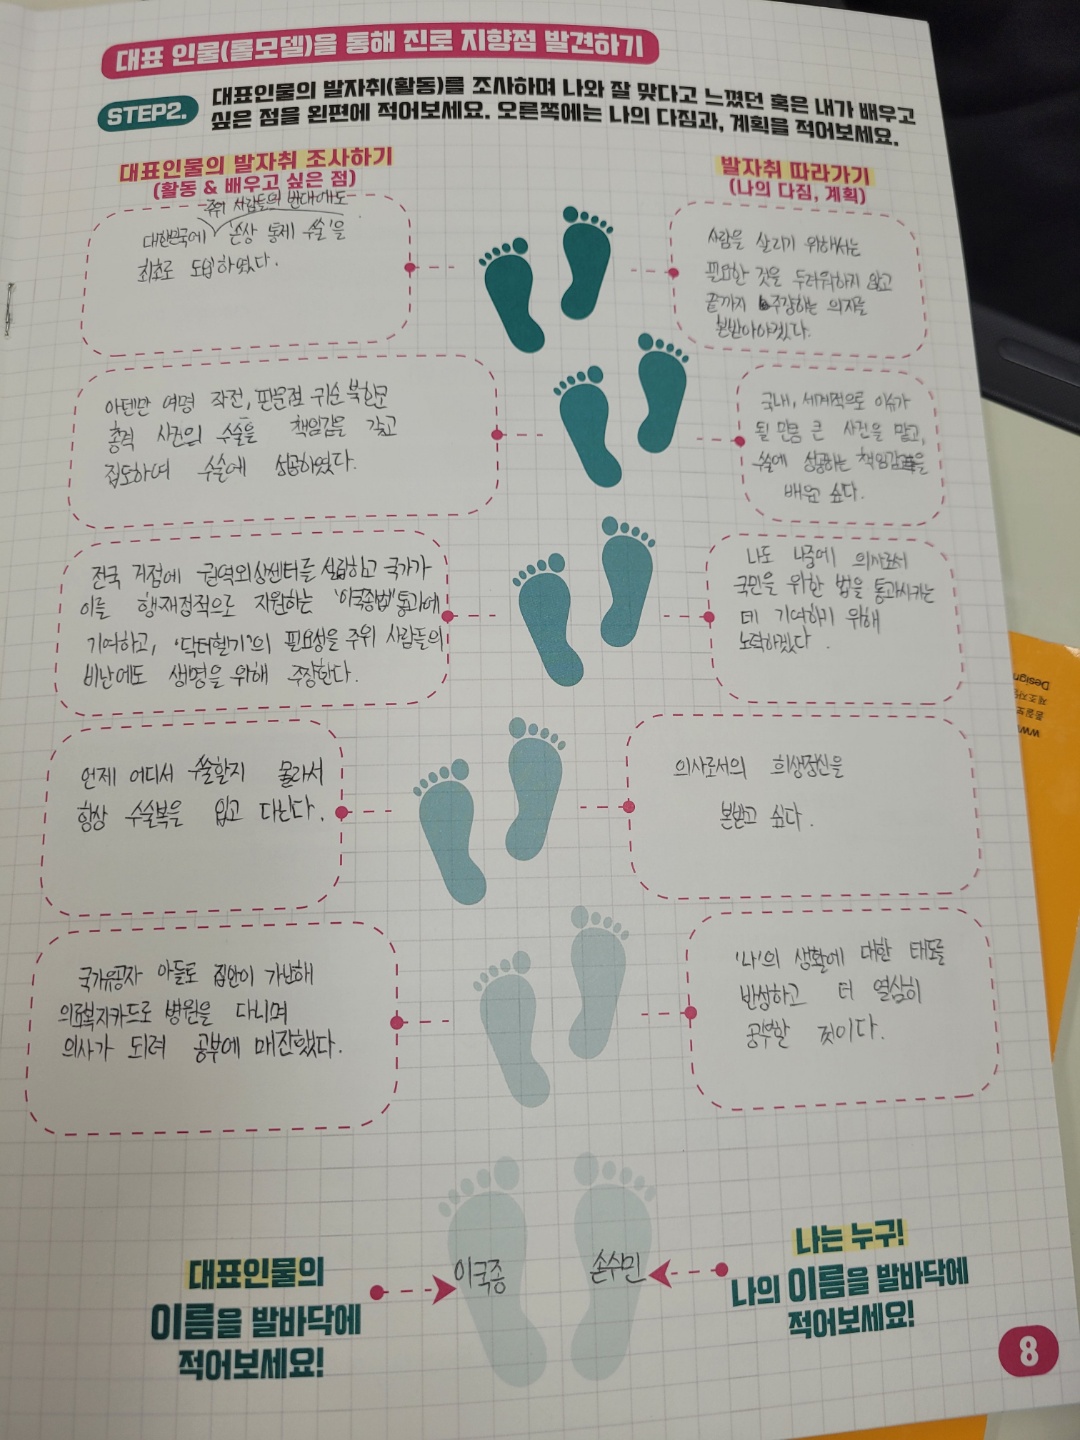 대표 인물(롤모델)을 통해 진로 지향점 발견하기
STEP2.
대표인물의 발자취(활동)를 조사하며 나와 잘 맞다고 느꼈던 혹은 내가 배우고
싶은 점을 왼편에 적어보세요. 오른쪽에는 나의 다짐과, 계획을 적어보세요.
대표인물의 발자취 조사하기
(활동 & 배우고 싶은 점)
발자취 따라가기
(나의 다짐, 계획)
주위 사람들의 반대에도
대한민국에 '손상 통제 수술'을
최초로 도입하였다.
사람을 살리기 위해서는
필요한 것을 두려워하지 않고
끝까지 주장하는 의지를
본받아야겠다.
아덴만 여명 작전, 판문점 귀순 북한군
총격 사건의 수술을 책임감을 갖고
집도하여 수술에 성공하였다.
국내, 세계적으로 이슈가
될 만큼 큰 사건을 맡고,
수술에 성공하는 책임감을
배우고 싶다.
전국 거점에 권역외상센터를 설립하고 국가가
이를 행·재정적으로 지원하는 '이국종법' 통과에
기여하고, '닥터헬기'의 필요성을 주위 사람들의
비난에도 생명을 위해 주장한다.
나도 나중에 의사로서
국민을 위한 법을 통과시키는
데 기여하기 위해
노력하겠다.
언제 어디서 수술할지 몰라서
항상 수술복을 입고 다닌다.
의사로서의 희생정신을
본받고 싶다.
국가유공자 아들로 집안이 가난해
의료복지카드로 병원을 다니며
의사가 되려 공부에 매진했다.
'나'의 생활에 대한 태도를
반성하고 더 열심히
공부할 것이다.
대표인물의
이름을 발바닥에
적어보세요!
이국종
손수민
나는 누구!
나의 이름을 발바닥에
적어보세요!
8
Design